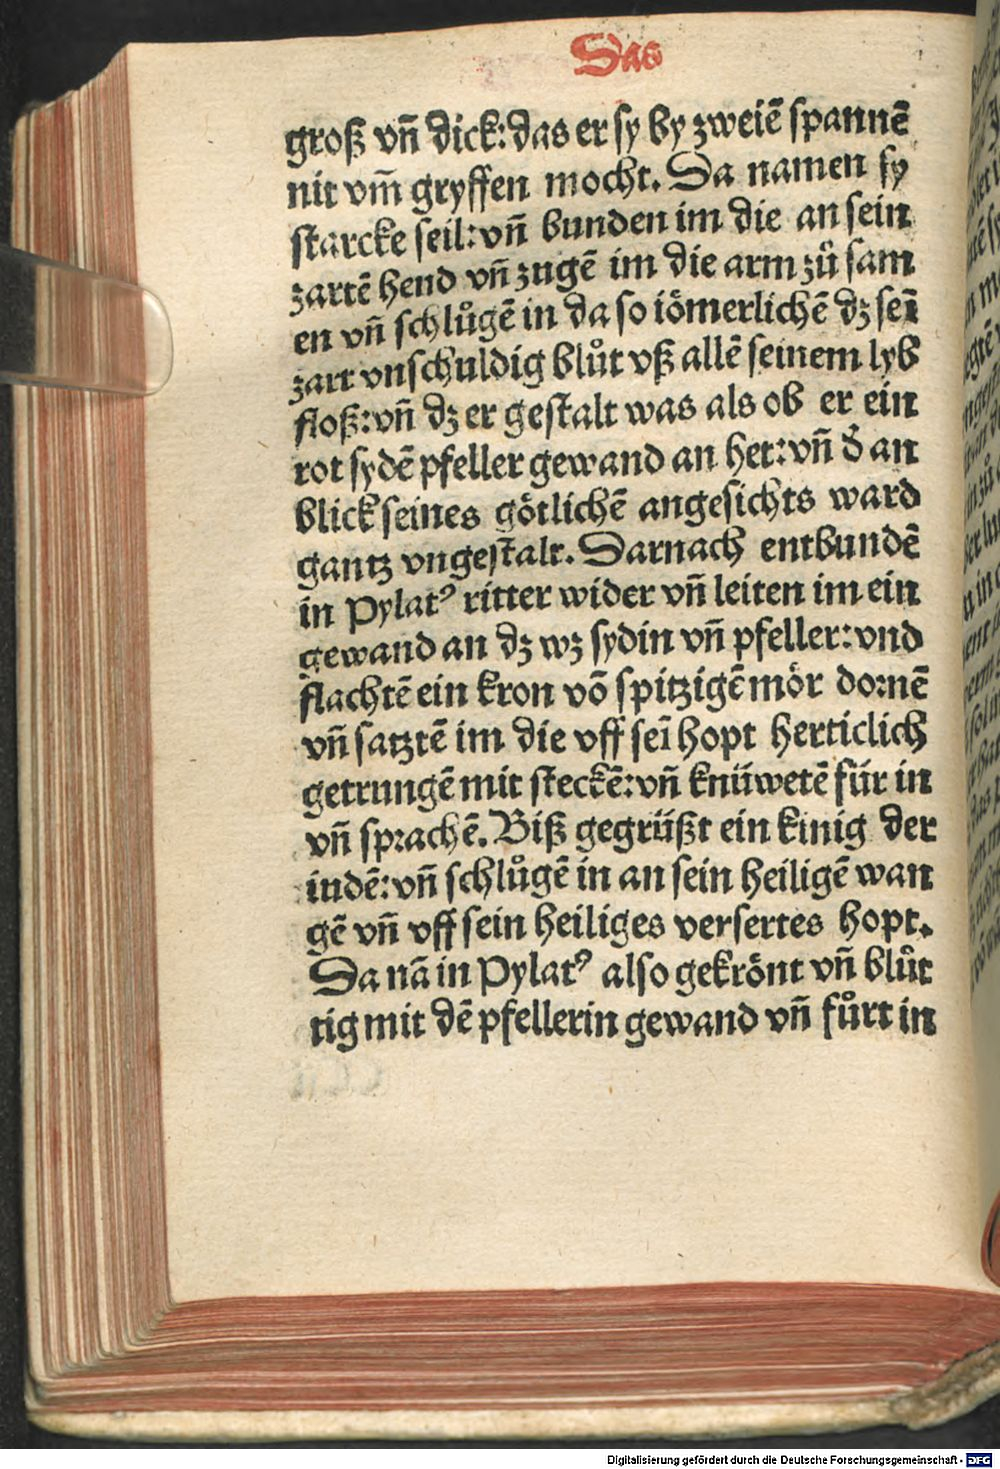 Das
groß vn̄ dick: das er sy by zweiē spannē
nit vm̄ gryffen mocht. Da namen sy
starcke seil: vn̄ bunden im die an sein
zartē hend vn̄ zugē im die arm zů sam
en vn̄ schlůgē in da so iömerlichē dz sēi
zart vnschuldig blůt vß allē seinem lyb
floß: vn̄ dz er gestalt was als ob er ein
rot sydē pfeller gewand an het: vn̄ d̛ an
blick seines götlichē angesichts ward
gantz vngestalt. Darnach entbundē
in Pylatꝰ ritter wider vn̄ leiten im ein
gewand an dz wz sydin vn̄ pfeller: vnd
flachtē ein kron vō spitzigē mör dornē
vn̄ satztē im die vff seī hopt herticlich
getrungē mit steckē: vn̄ knüwetē für in
vn̄ sprachē. Biß gegrüßt ein kinig der
indē: vn̄ schlůgē in an sein heiligē wan
gē vn̄ vff sein heiliges versertes hopt.
Da nā in Pylatꝰ also gekrönt vn̄ blůt
tig mit dē pfellerin gewand vn̄ fůrt in
Digitalisierung gefördert durch die Deutsche Forschungsgemeinschaft - DFG